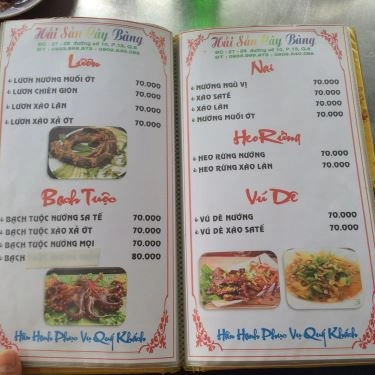 Hải Sản Cây Bàng
Lươn
LƯƠN NƯỚNG MUỐI ỚT 70.000
LƯƠN CHIÊN GIÒN 70.000
LƯƠN XÀO LĂN 70.000
LƯƠN XÀO XẢ ỚT 70.000
Bạch Tuộc
BẠCH TUỘC NƯỚNG SA TẾ 70.000
BẠCH TUỘC XÀO XẢ ỚT 70.000
BẠCH TUỘC NƯỚNG MỌI 70.000
BẠCH 80.000
Hân Hạnh Phục Vụ Quý Khách
Hải Sản Cây Bàng
Nai
NƯỚNG NGŨ VỊ 70.000
XÀO SATẾ 70.000
XÀO LĂN 70.000
NƯỚNG MUỐI ỚT 70.000
Heo Rừng
HEO RỪNG NƯỚNG 70.000
HEO RỪNG XÀO LĂN 70.000
Vú Dê
VÚ DÊ NƯỚNG 70.000
VÚ DÊ XÀO SATẾ 70.000
Hân Hạnh Phục Vụ Quý Khách